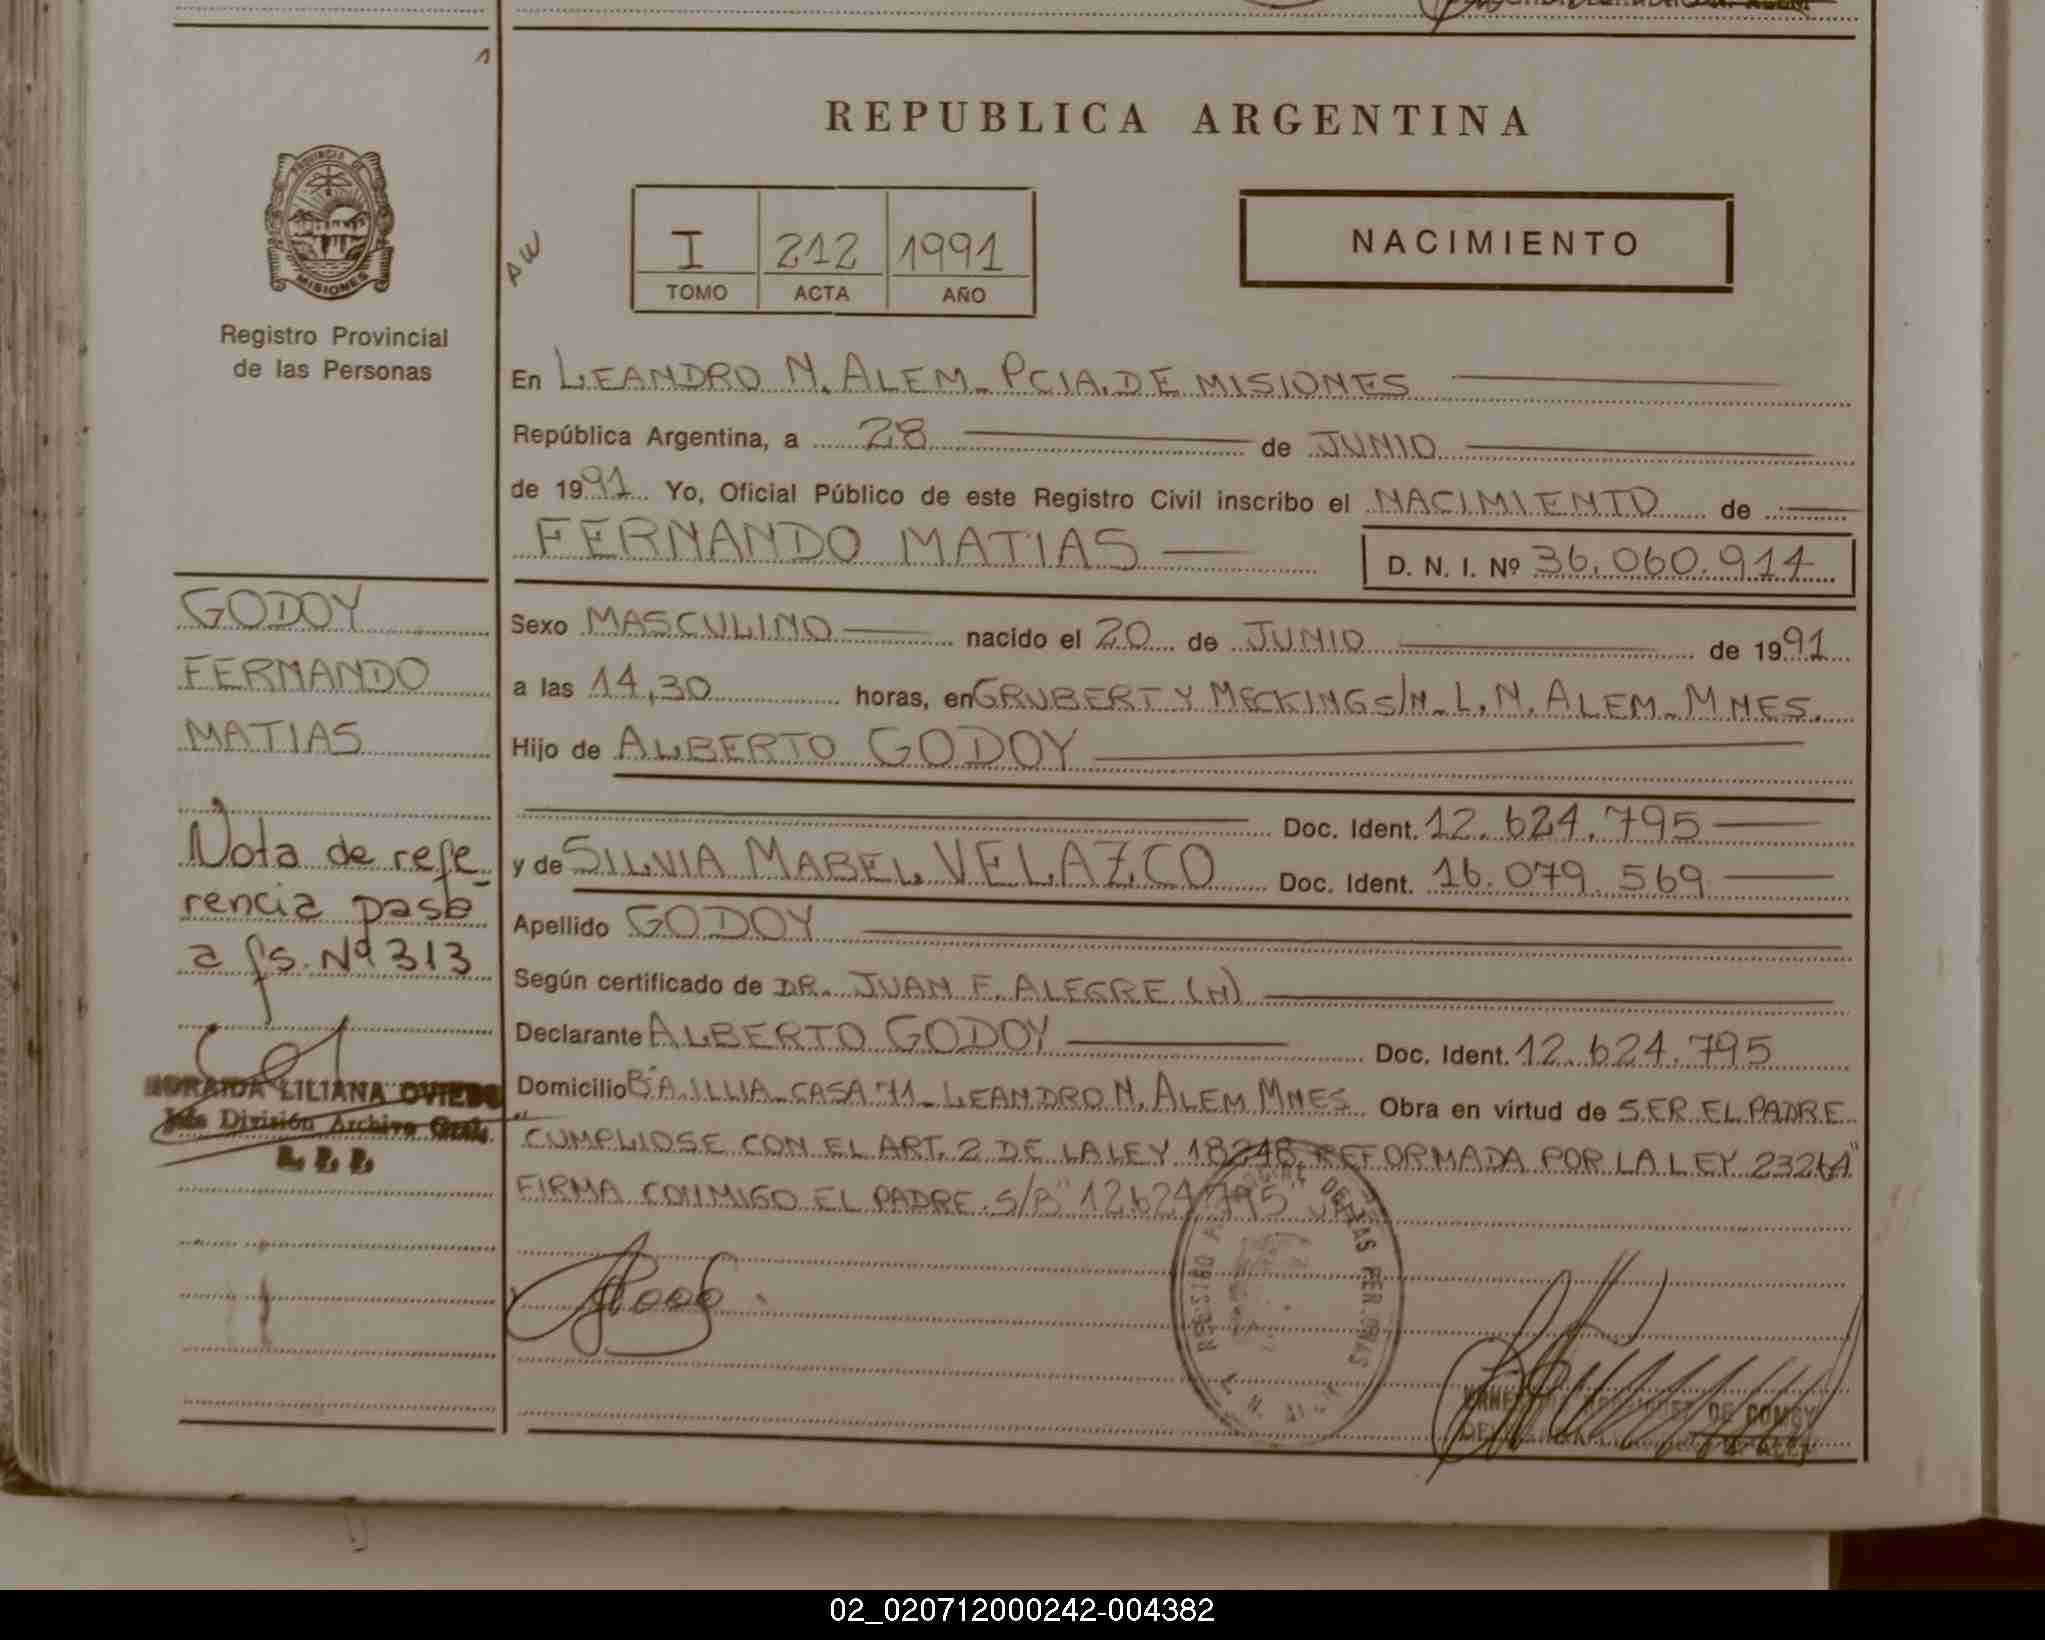 REPUBLICA ARGENTINA
PROVINCIA DE
MISIONES
Registro Provincial
de las Personas
I 212 1991
TOMO ACTA AÑO
NACIMIENTO
En LEANDRO N. ALEM - PCIA. DE MISIONES
República Argentina, a 28 de JUNIO
de 1991 Yo, Oficial Público de este Registro Civil inscribo el NACIMIENTO de
FERNANDO MATIAS
D. N. I. Nº 36.060.914
GODOY
FERNANDO
MATIAS
Nota de refe
rencia pasó
a fs. Nº 313
LILIANA OVIEDO
Jefe División Archivo Gral.
R. P. P.
Sexo MASCULINO nacido el 20 de JUNIO de 1991
a las 14,30 horas, en GRUBERT Y MECKING S/N - L. N. ALEM - MNES.
Hijo de ALBERTO GODOY
Doc. Ident. 12.624.795
y de SILVIA MABEL VELAZCO Doc. Ident. 16.079.569
Apellido GODOY
Según certificado de DR. JUAN F. ALEGRE (H)
Declarante ALBERTO GODOY Doc. Ident. 12.624.795
Domicilio Bº A. ILLIA - CASA 71 - LEANDRO N. ALEM MNES Obra en virtud de SER EL PADRE
"CUMPLIOSE CON EL ART. 2 DE LA LEY 18248 REFORMADA POR LA LEY 23264"
FIRMA CONMIGO EL PADRE. S/B" 12.624.795
REGISTRO DE LAS PERSONAS
L. N. ALEM
DE COMBY
02_020712000242-004382